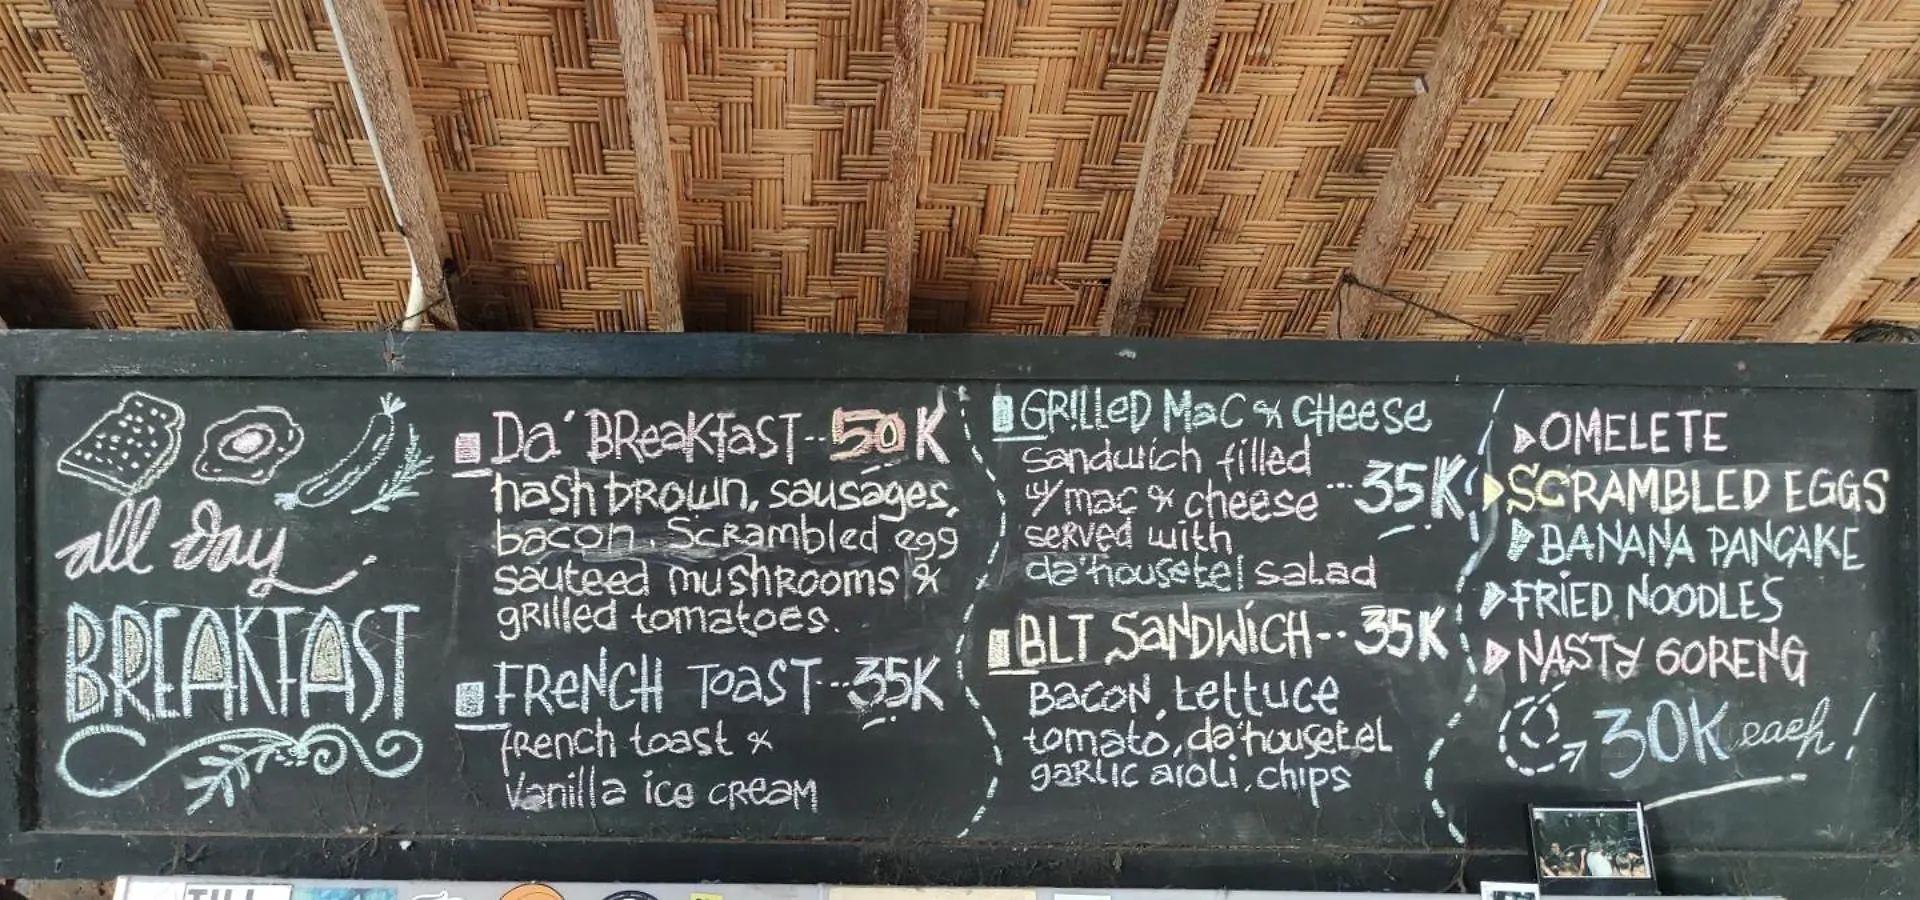 all day
BREAKFAST
Da' BReaKfaST -- 50K
hash brown, sausages,
bacon, Scrambled egg
sauteed mushrooms &
grilled tomatoes.
FReNCH ToaST --- 35K
french toast &
Vanilla ice cream
GRiLLeD MaC & CHeese
sandwich filled
w/ mac & cheese --- 35K
served with
da'housetel salad
BLT SaNDWiCH -- 35K
Bacon, Lettuce
tomato, da'housetel
garlic aioli, chips
OMELETE
SCRAMBLED EGGS
BANANA PANCAKE
FRiED NOODLES
NASTY GORENG
30K each!